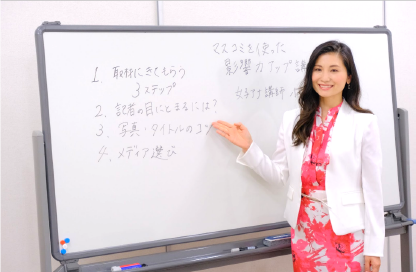 マスコミを使った
影響力アップ講
女子力講師
1. 取材にきてもらう
3ステップ
2. 記者の目にとまるには?
3. 写真・タイトルのコツ
4. メディア選び